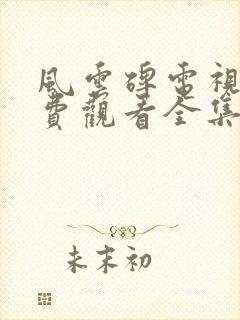 風雲碑電視
費觀看全集
未末初